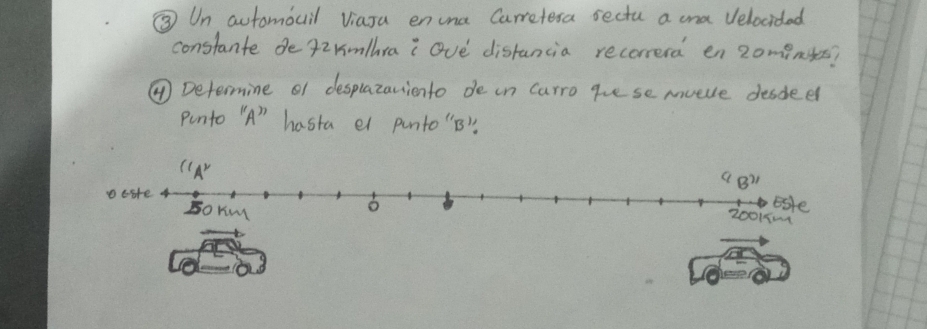 ③ Un automóvil viaja en una carretera recta a una velocidad
constante de 72 km/hra ¿ Qué distancia recorrerá en 20 minutos?
④ Determine el desplazamiento de un carro que se mueve desde el
punto "A" hasta el punto "B".
"A" "B"
oeste 50 km 0 200 km Este